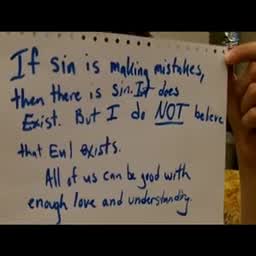 If sin is making mistakes,
then there is sin. It does
Exist. But I do NOT believe
that Evil exists.
All of us can be good with
enough love and understanding.